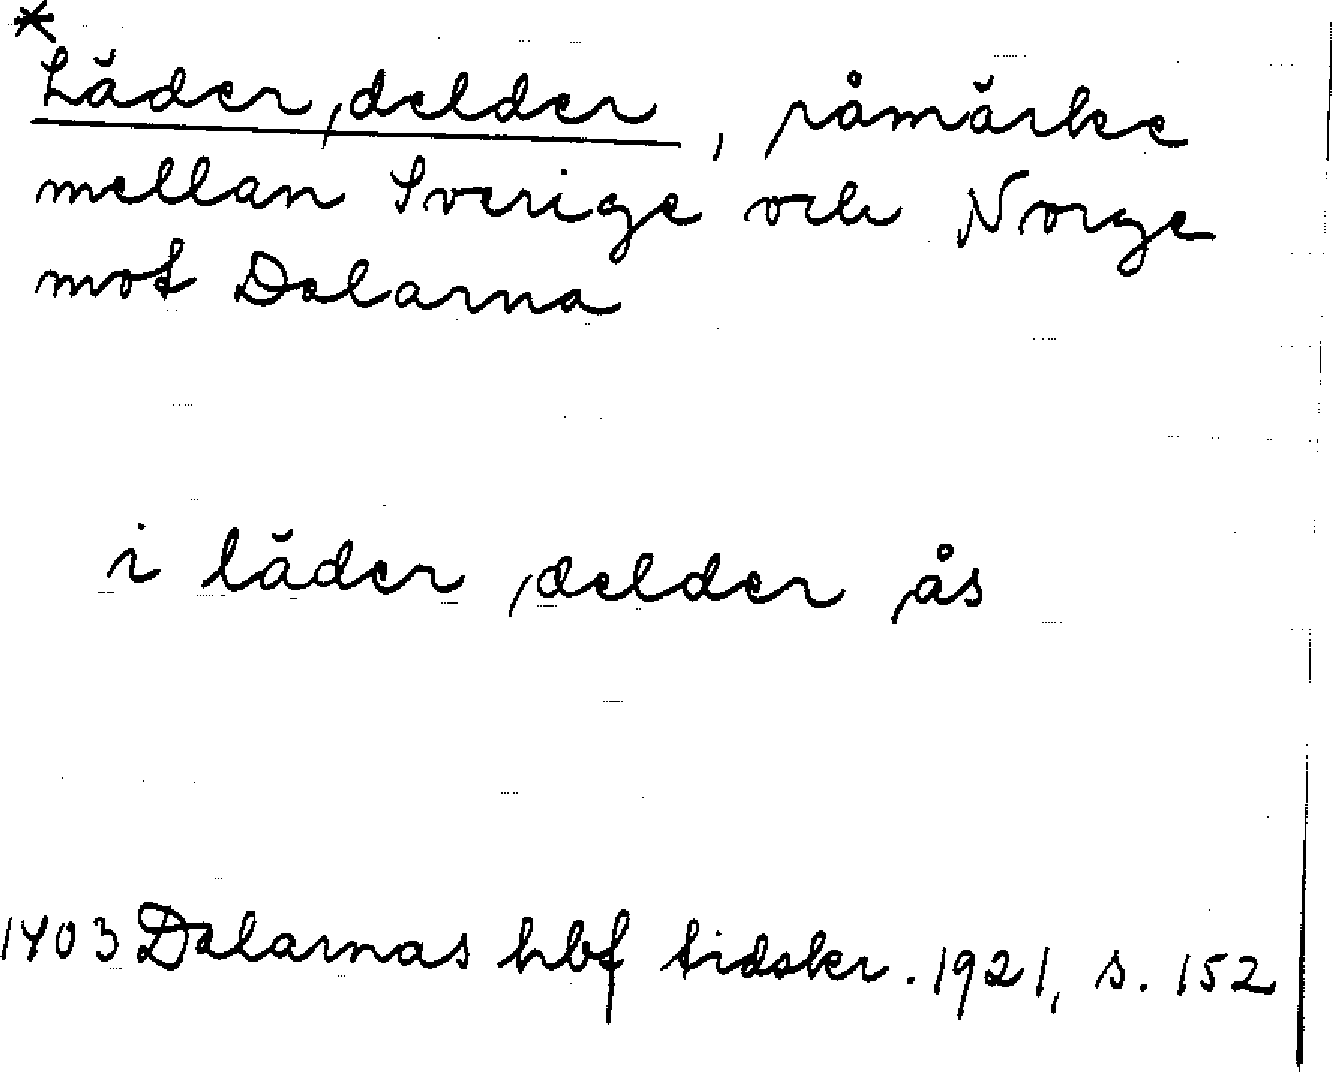 *
Läder,delder, råmärke
mellan Sverige och Norge
mot Dalarna
i läder,delder ås
1403 Dalarnas hbf tidskr. 1921, s. 152